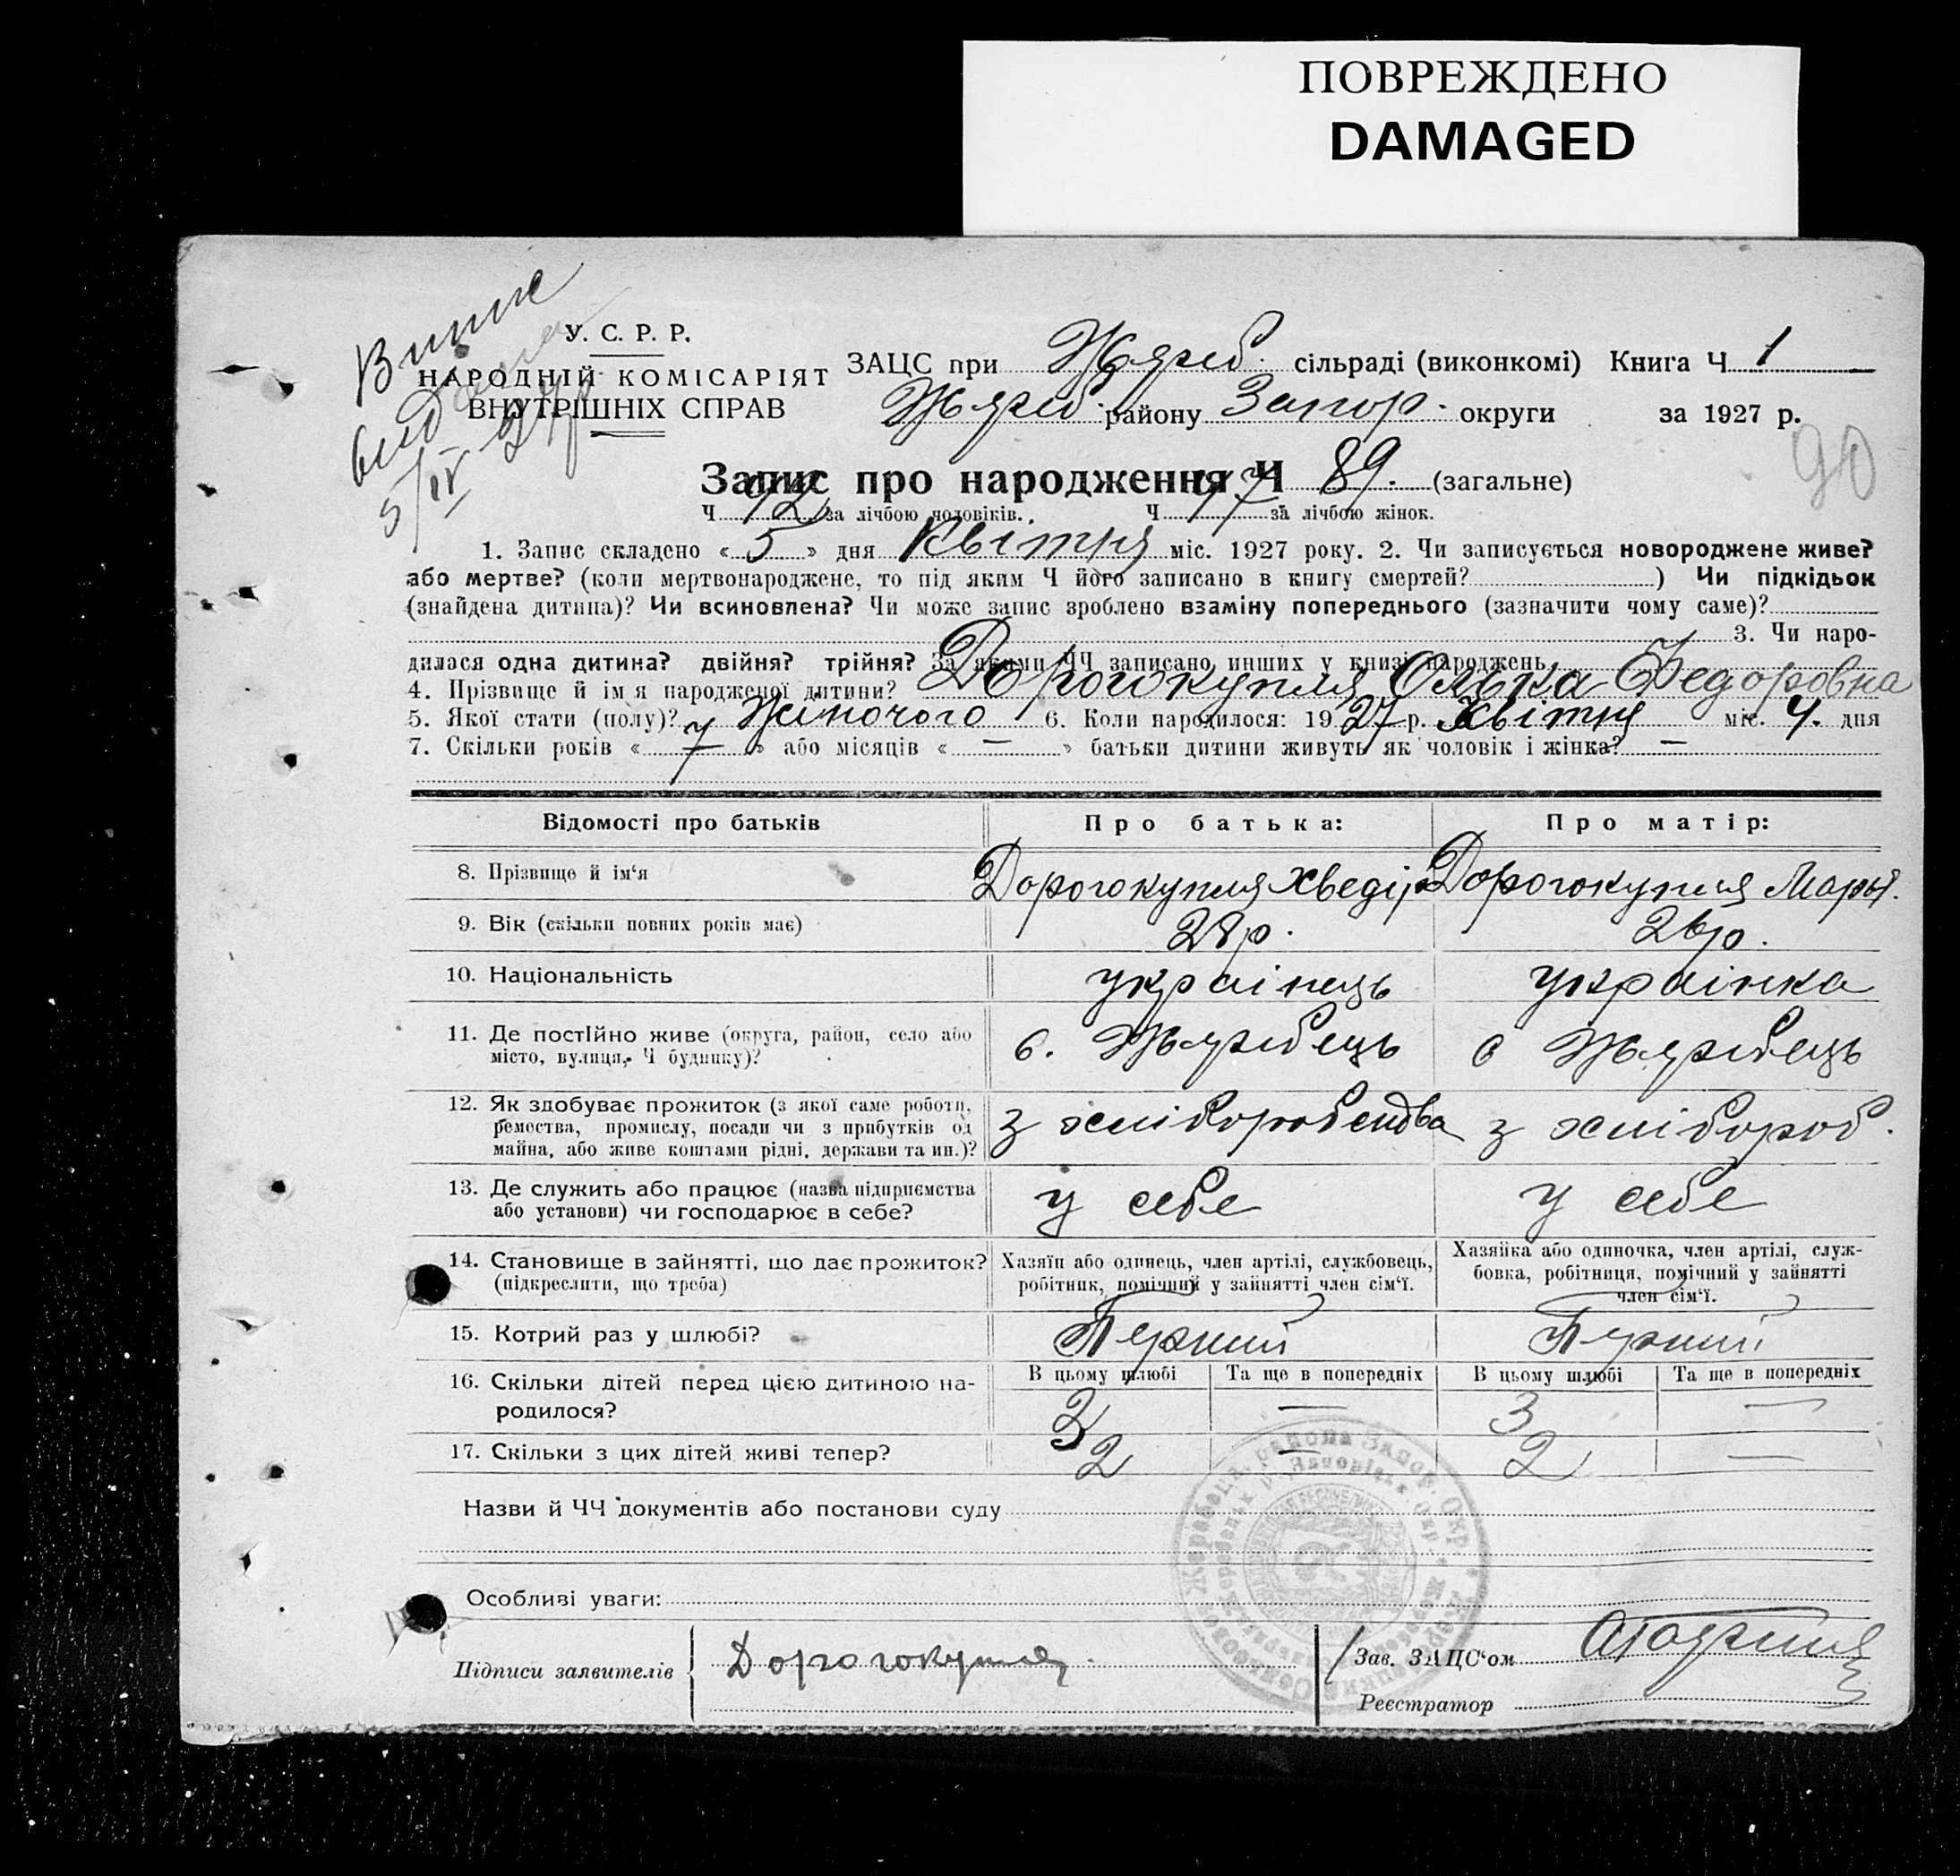 ПОВРЕЖДЕНО
DAMAGED
Витяг
видана
5/IV 27р
У. С. Р. Р.
НАРОДНІЙ КОМІСАРІЯТ
ВНУТРІШНІХ СПРАВ
ЗАЦС при Жереб. сільраді (виконкомі) Книга Ч 1
Жереб. району Запор. округи за 1927 р.
90
Запис про народження Ч 89. (загальне)
Ч 42 за лічбою чоловіків. Ч 47 за лічбою жінок.
1. Запис складено « 5 » дня Квітня міс. 1927 року. 2. Чи записується новороджене живе?
або мертве? (коли мертвонароджене, то під яким Ч його записано в книгу смертей? ) Чи підкідьок
(знайдена дитина)? Чи всиновлена? Чи може запис зроблено взаміну попереднього (зазначити чому саме)?
3. Чи наро-
дилася одна дитина? двійня? трійня? За якими ЧЧ записано инших у книзі народжень
4. Прізвище й ім'я народженої дитини? Дорогокупля Олька Федоровна
5. Якої стати (полу)? Жіночого 6. Коли народилося: 1927 р. Квітня міс. 4. дня
7. Скільки років « 7 » або місяців « — » батьки дитини живуть як чоловік і жінка? —
Відомості про батьків Про батька: Про матір:
8. Прізвище й ім'я Дорогокупля Хведір Дорогокупля Марія.
9. Вік (скільки повних років має) 28р. 26р.
10. Національність українець українка
11. Де постійно живе (округа, район, село або
місто, вулиця, Ч будинку)? с. Жеребець с Жеребець
12. Як здобуває прожиток (з якої саме роботи,
ремества, промислу, посади чи з прибутків од
майна, або живе коштами рідні, держави та ин.)? з хліборобства з хлібороб.
13. Де служить або працює (назва підприємства
або установи) чи господарює в себе? у себе у себе
14. Становище в зайнятті, що дає прожиток?
(підкреслити, що треба)
Хазяїн або одинець, член артілі, службовець,
робітник, помічний у зайнятті член сім'ї.
Хазяйка або одиночка, член артілі, служ-
бовка, робітниця, помічний у зайнятті
член сім'ї.
15. Котрий раз у шлюбі? Перший Перший
В цьому шлюбі Та ще в попередніх В цьому шлюбі Та ще в попередніх
16. Скільки дітей перед цією дитиною на-
родилося? 3 — 3 —
17. Скільки з цих дітей живі тепер? 2 — 2 —
Назви й ЧЧ документів або постанови суду
Особливі уваги:
Підписи заявителів Дорогокупля.
Зав. ЗАЦС'ом
Реєстратор